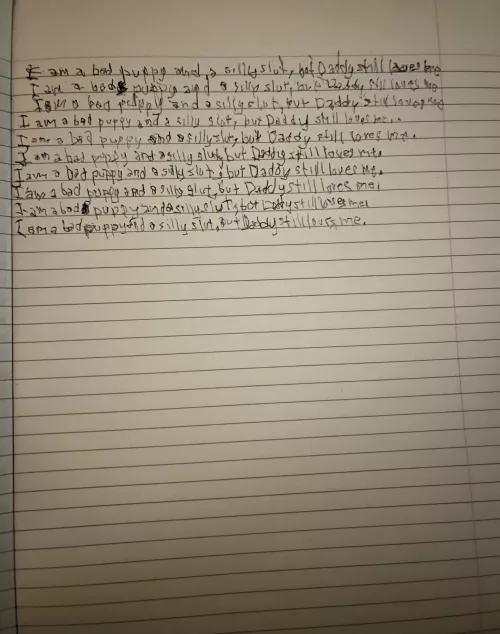 I am a bad puppy and a silly slut, but Daddy still loves me
I am a bad puppy and a silly slut, but Daddy still loves me
I am a bad puppy and a silly slut, but Daddy still loves me
I am a bad puppy and a silly slut, but Daddy still loves me.
I am a bad puppy and a silly slut, but Daddy still loves me.
I am a bad puppy and a silly slut, but Daddy still loves me.
I am a bad puppy and a silly slut, but Daddy still loves me.
I am a bad puppy and a silly slut, but Daddy still loves me.
I am a bad puppy and a silly slut, but Daddy still loves me.
I am a bad puppy and a silly slut, but Daddy still loves me.